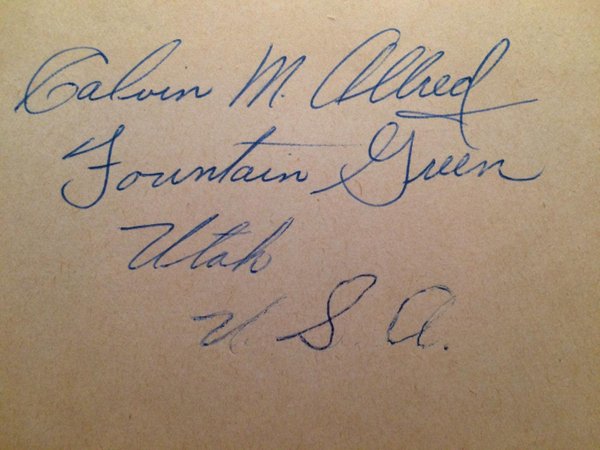 Calvin M. Allred
Fountain Green
Utah
U. S. A.